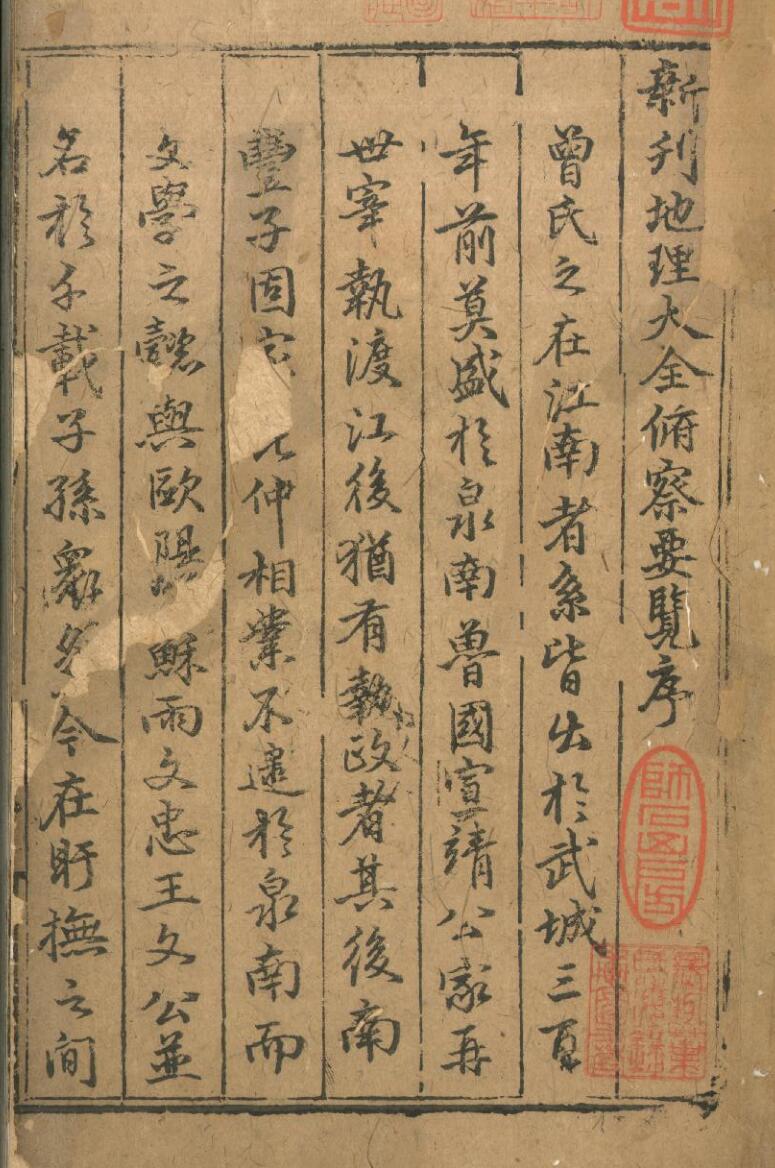 新刋地理大全俯察要覽序
曾氏之在江南者系皆出於武城三百
年前莫盛於泉南魯國宣靖公家再
世宰執渡江後猶有執政者其後南
豐子固 仲相業不逮於泉南而
文學之懿與歐陽 穌兩文忠王文公並
名於千載子孫 今在盱撫之間